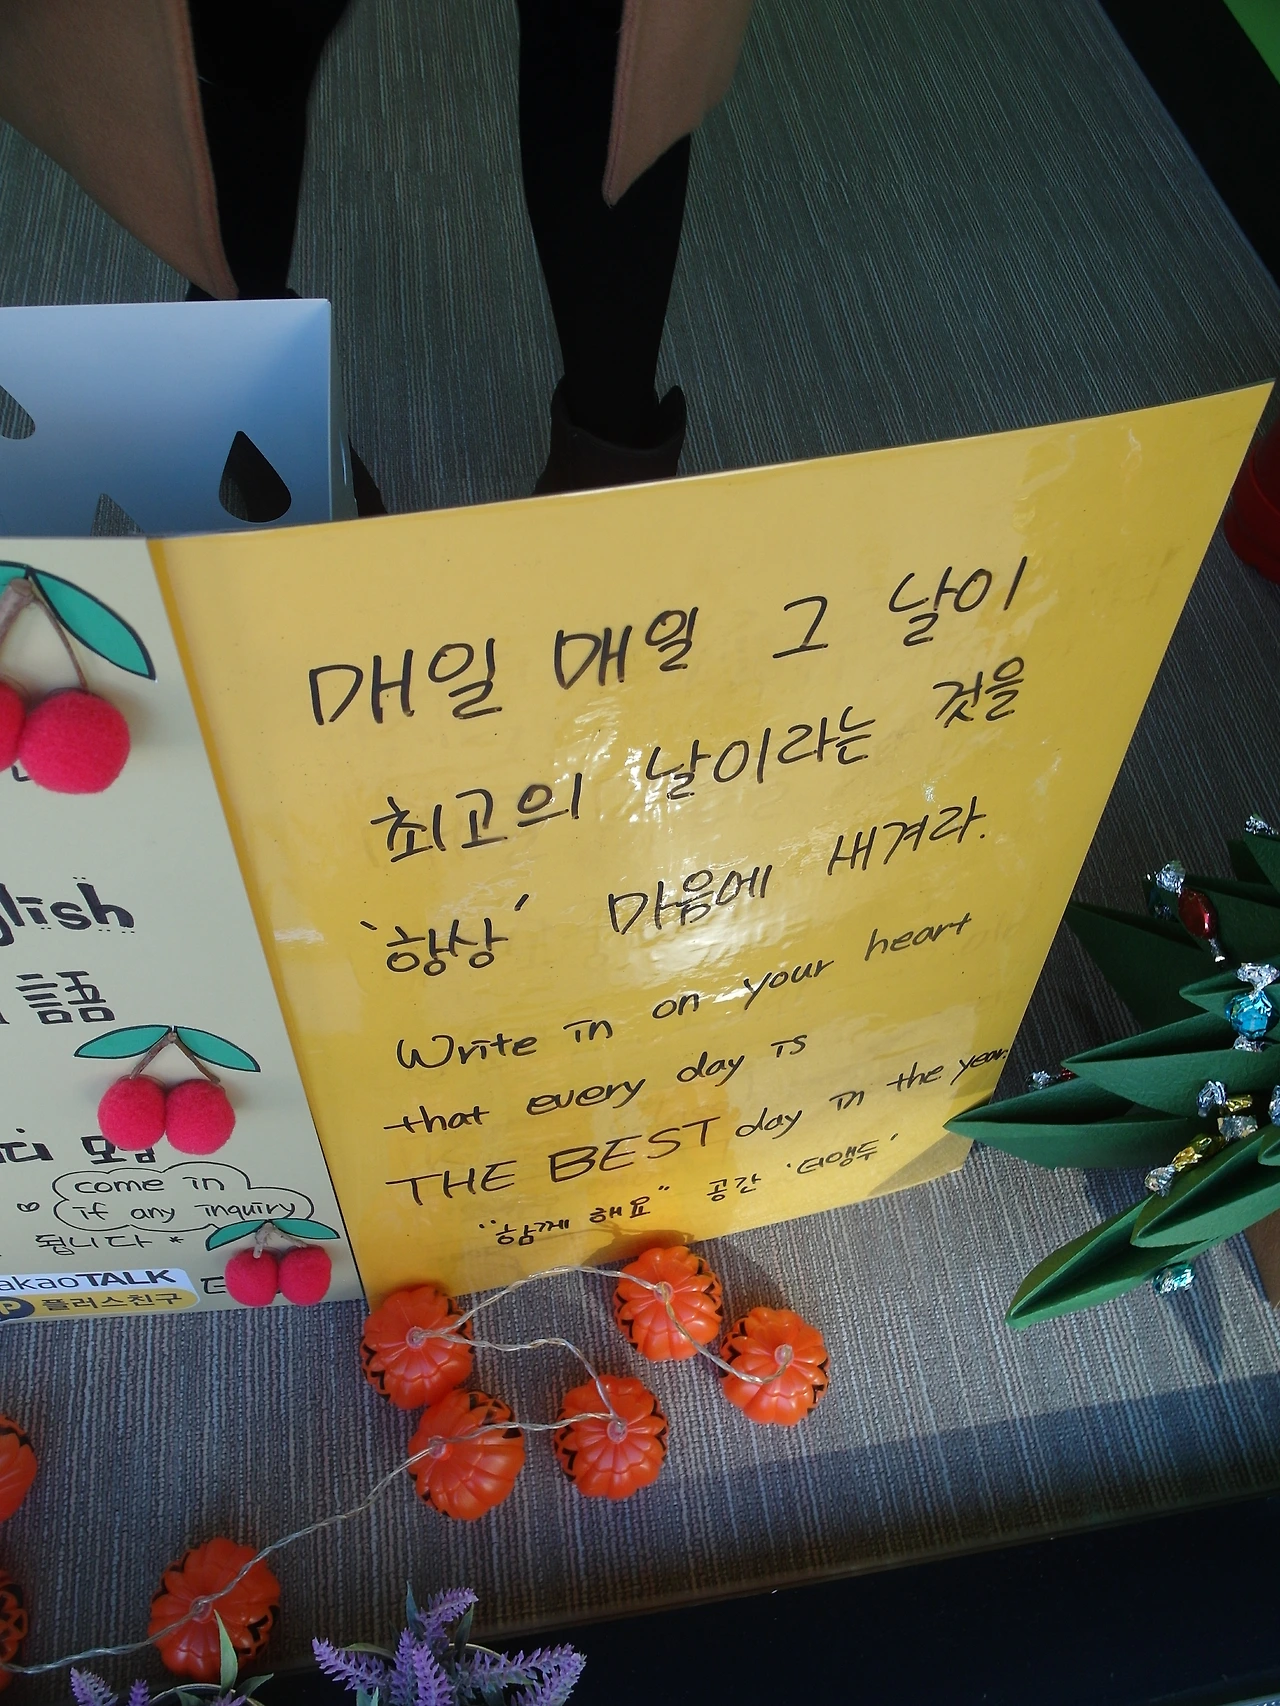 glish
語
come in
if any inquiry
됩니다 *
akaoTALK
플러스친구
매일 매일 그 날이
최고의 날이라는 것을
'항상' 마음에 새겨라.
Write in on your heart
that every day is
THE BEST day in the year.
"함께 해요" 공간 '더앵두'